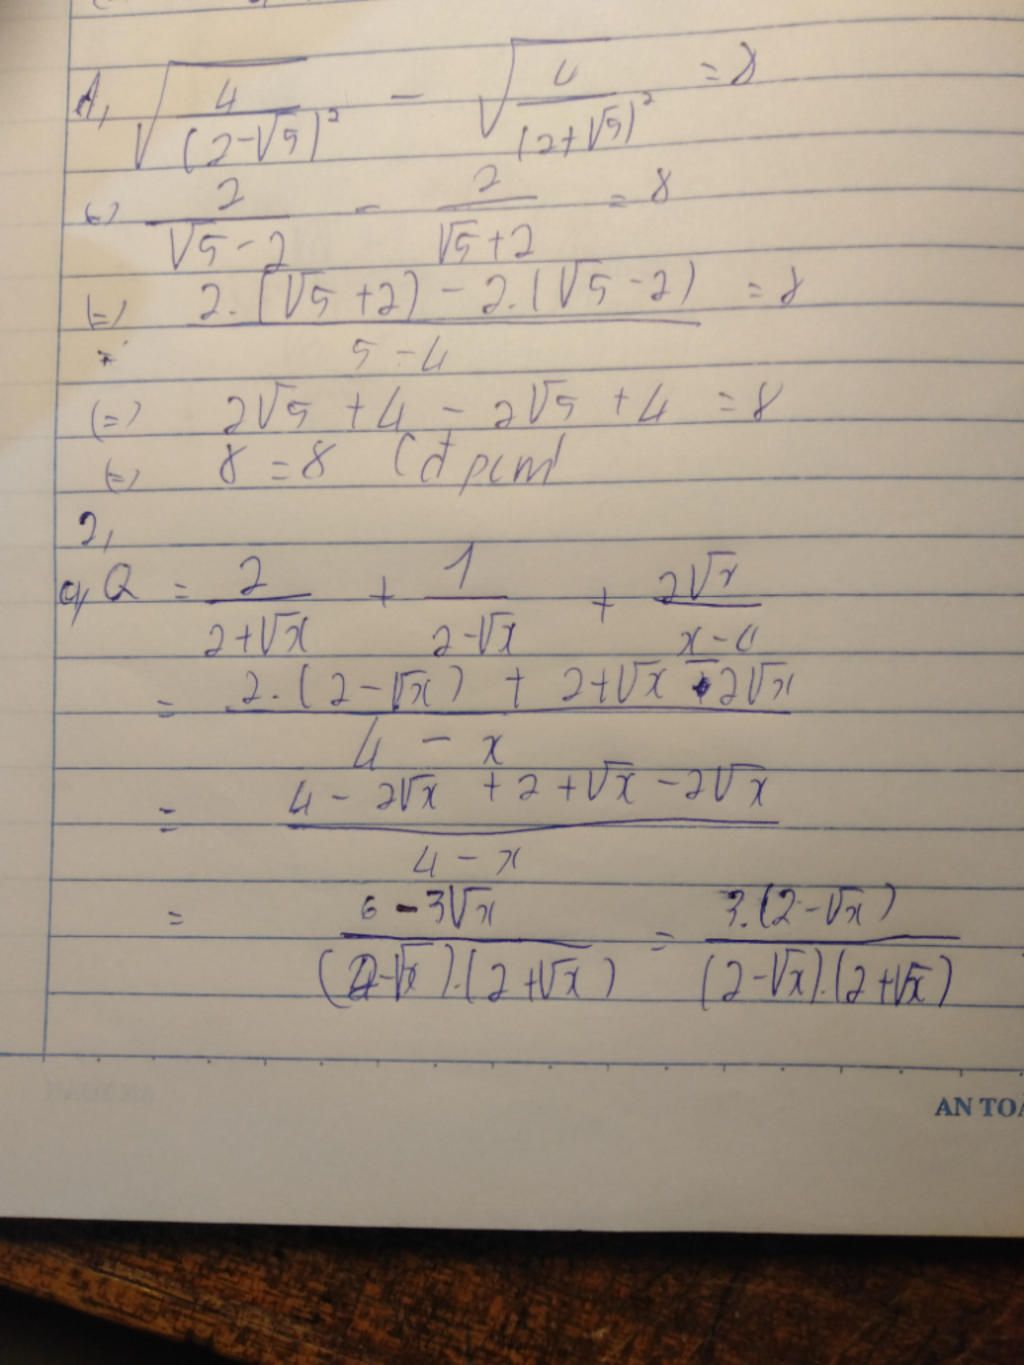 A, √(4/(2-√5)²) - √(4/(2+√5)²) = 8
(=) 2/(√5-2) - 2/(√5+2) = 8
(=) (2.(√5+2) - 2.(√5-2))/(5-4) = 8
(=) 2√5 + 4 - 2√5 + 4 = 8
(=) 8 = 8 (đpcm)
2,
a, Q = 2/(2+√x) + 1/(2-√x) + 2√x/(x-4)
= (2.(2-√x) + 2+√x - 2√x)/(4-x)
= (4 - 2√x + 2 + √x - 2√x)/(4-x)
= (6-3√x)/((2-√x).(2+√x)) = 3.(2-√x)/((2-√x).(2+√x))